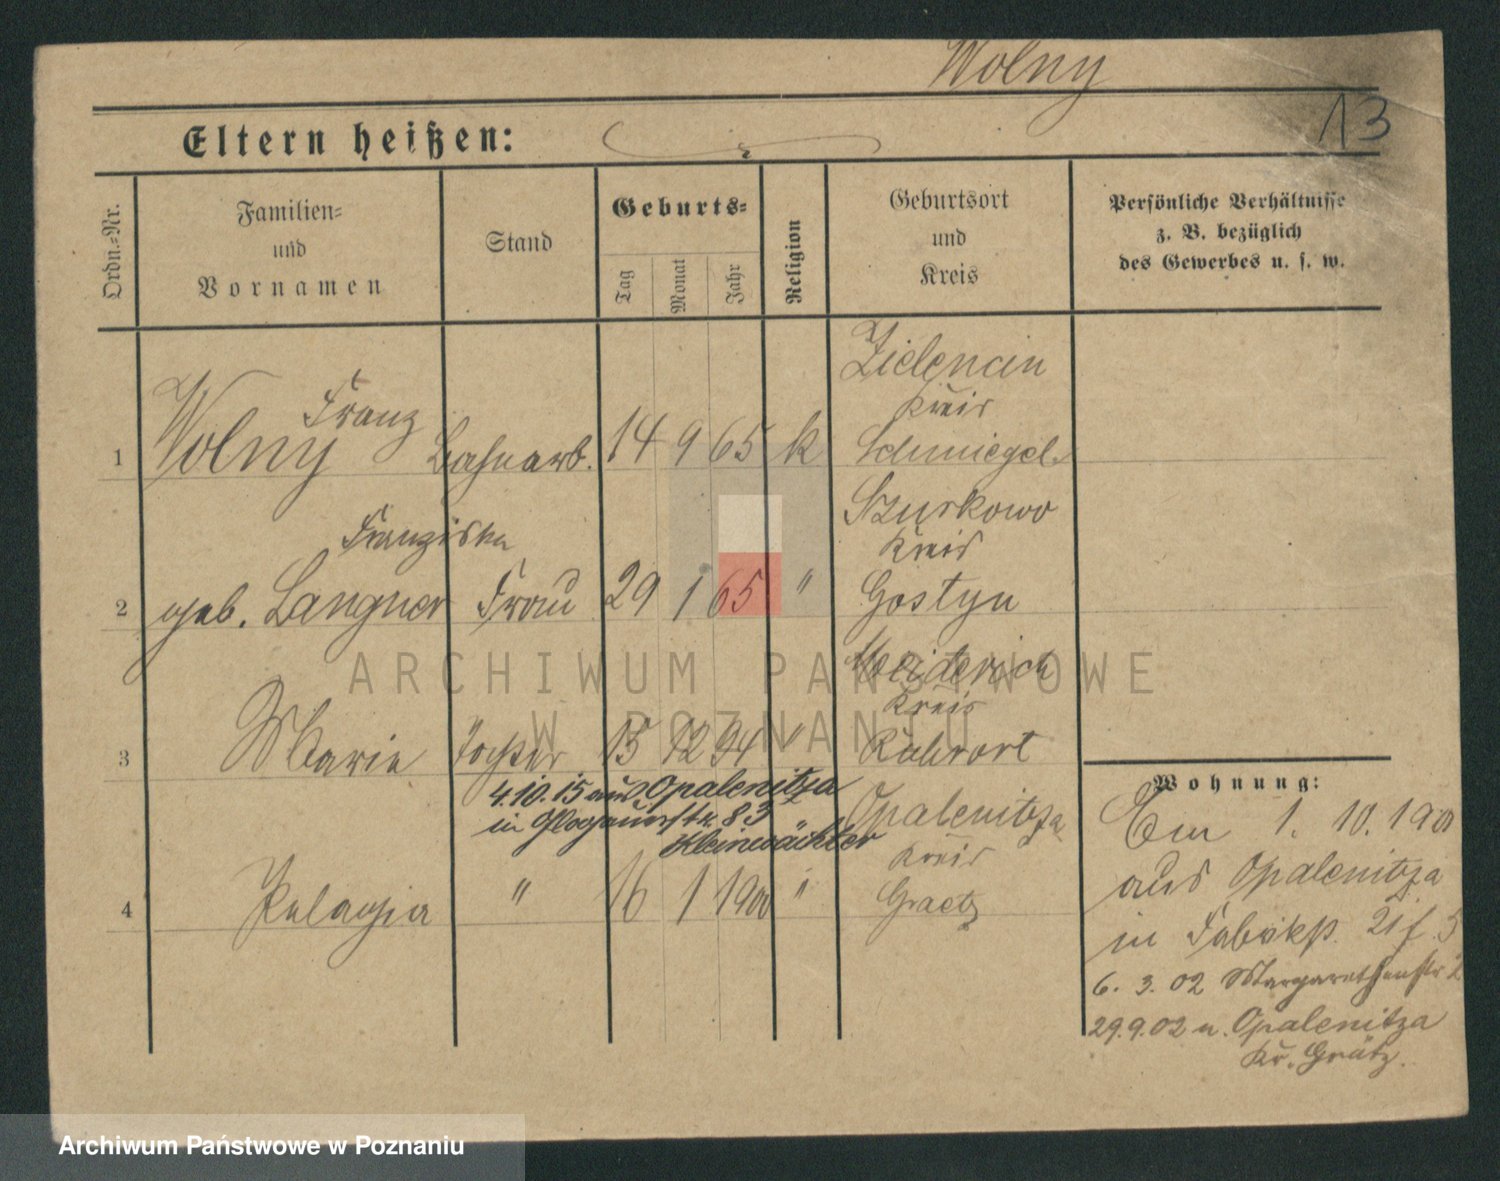 Wolny
13
Eltern heißen:
Ordn.-Nr.
Familien-
und
Vornamen
Stand
Geburts-
Tag
Monat
Jahr
Religion
Geburtsort
und
Kreis
Persönliche Verhältnisse
z. B. bezüglich
des Gewerbes u. s. w.
Zielencin
Kreis
Franz
1 Wolny Bahnarb. 14 9 65 k Schmiegel
Szurkowo
Franziska Kreis
2 geb. Langner Frau 29 1 65 " Gostyn
Meiderich
Kreis
3 Marie Tochter 15 12 94 " Ruhrort
4.10.15 aus Opalenitza
in Glogauerstr. 83
Kleinwächter
Opalenitza
Kreis
4 Pelagia " 16 1 1900 " Graetz
Wohnung:
Em 1. 10. 1900
aus Opalenitza
in Fabrikp.
6. 3. 02 Margarethenstr 2
29.9.02 n. Opalenitza
Kr. Grätz.
ARCHIWUM PAŃSTWOWE
W POZNANIU
Archiwum Państwowe w Poznaniu